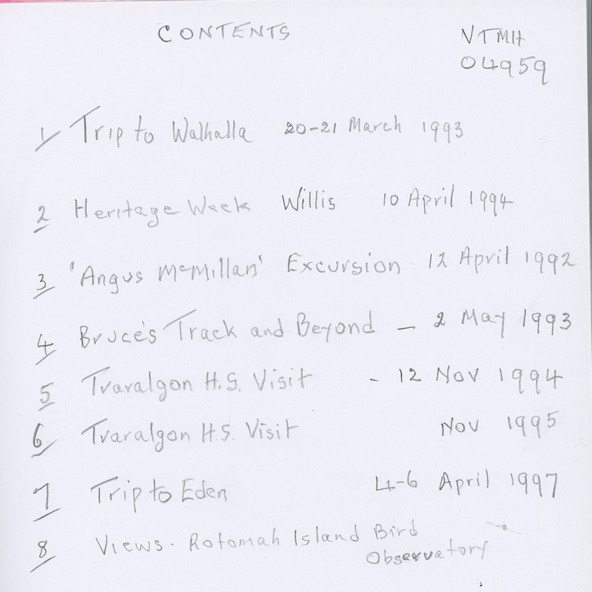 CONTENTS
VTMH
04959
1/ Trip to Walhalla 20-21 March 1993
2 Heritage Week Willis 10 April 1994
3 'Angus McMillan' Excursion 12 April 1992
4 Bruce's Track and Beyond - 2 May 1993
5 Traralgon H.S. Visit - 12 Nov 1994
6 Traralgon H.S. Visit Nov 1995
7 Trip to Eden 4-6 April 1997
8 Views. Rotomah Island Bird
Observatory